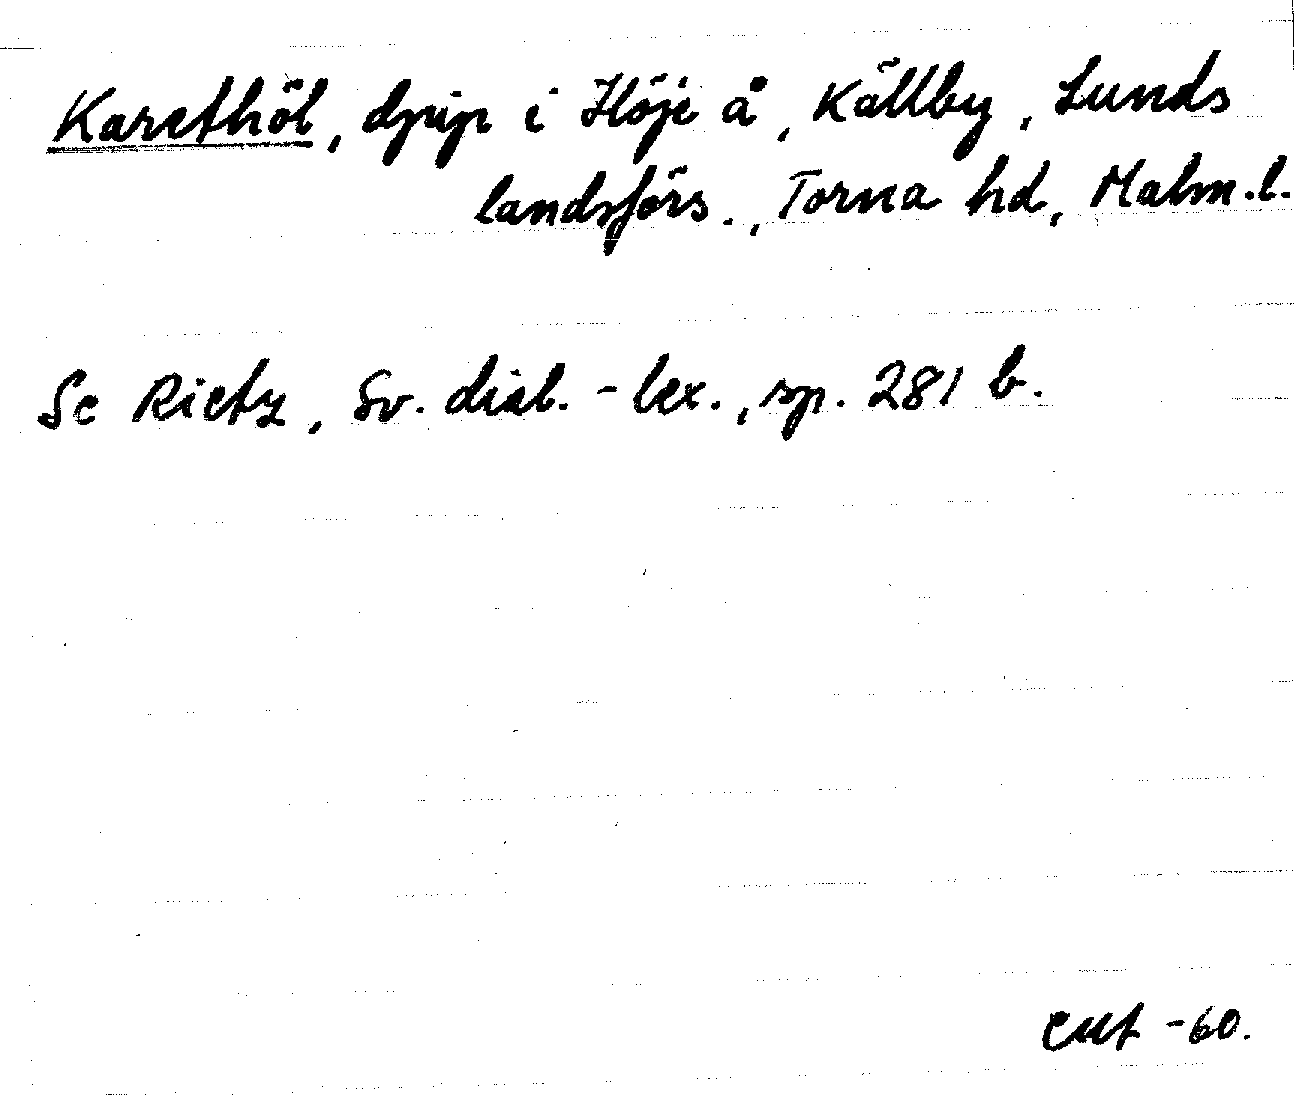 Karethöl, djup i Höje å, Källby, Lunds
landsförs., Torna hd, Malm.l.
Se Rietz, Sv. dial.-lex., sp. 281 b.
-60.